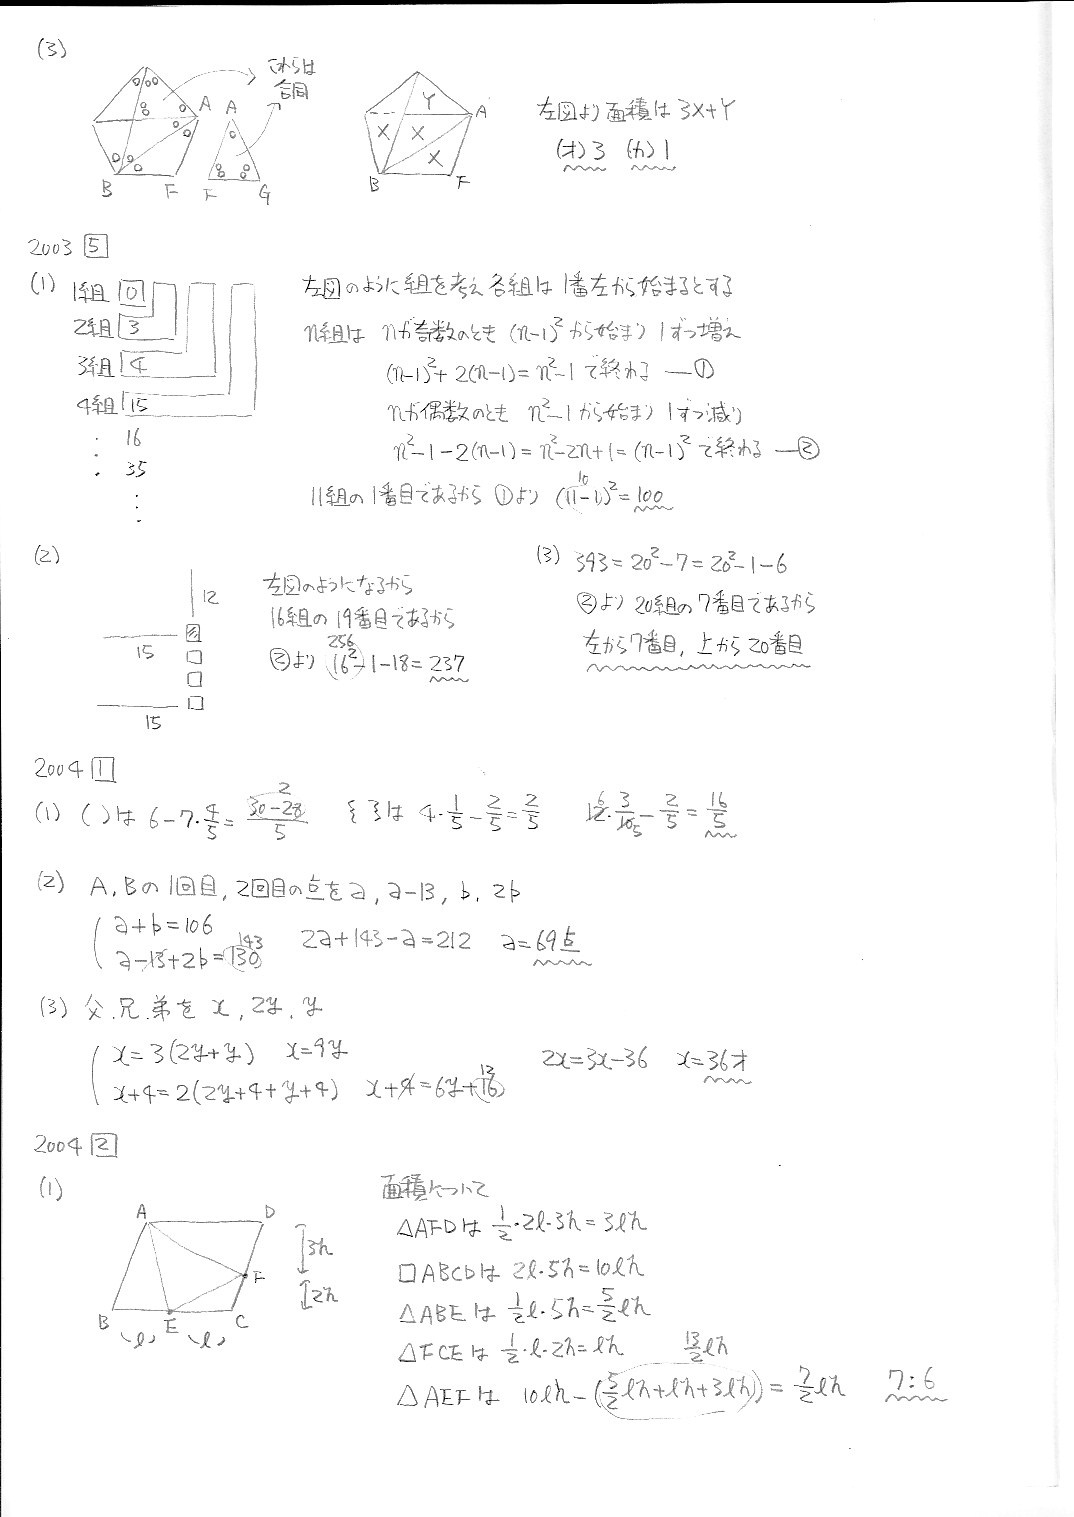 (3)
これらは
合同
A A
B F F G
Y
X X
X
A
B F
左図より面積は 3X+Y
(オ) 3 (カ) 1
2003 5
(1)
1組 0
2組 3
3組 4
4組 15
16
35
左図のように組を考え各組は1番左から始まるとする
n組は nが奇数のとき (n-1)²から始まり 1ずつ増え
(n-1)²+2(n-1)=n²-1で終わる —①
nが偶数のとき n²-1から始まり 1ずつ減り
n²-1-2(n-1)=n²-2n+1=(n-1)²で終わる —②
10
11組の1番目であるから ①より (11-1)²=100
(2)
12
15
15
左図のようになるから
16組の19番目であるから
256
②より 16²-1-18=237
(3) 393=20²-7=20²-1-6
②より 20組の7番目であるから
左から7番目, 上から20番目
2004 1
(1) ( )は 6-7・4/5=(30-28)/5 2 { }は 4・1/5-2/5=2/5 12・3/10-2/5=16/5 6 5
(2) A, Bの1回目, 2回目の点をa, a-13, b, 2b
a+b=106
a-13+2b=130 143
2a+143-a=212 a=69点
(3) 父.兄.弟を x, 2y, y
x=3(2y+y) x=9y
x+4=2(2y+4+y+4) x+4=6y+16 12
2x=3x-36 x=36才
2004 2
(1)
A D
3h
F
2h
B E C
l l
面積について
△AFDは 1/2・2l・3h=3lh
□ABCDは 2l・5h=10lh
△ABEは 1/2l・5h=5/2lh
△FCEは 1/2・l・2h=lh 13/2lh
△AEFは 10lh-(5/2lh+lh+3lh)=7/2lh 7:6